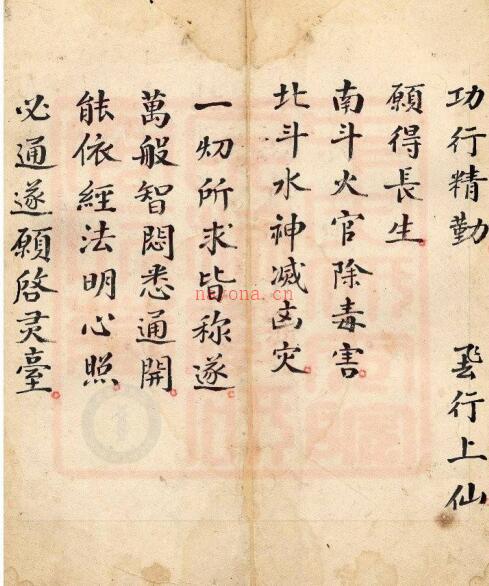 功行精勤　飛行上仙
願得長生
南斗火官除毒害
北斗水神滅凶灾
一切所求皆称遂
萬般智悶悉通開
能依經法明心照
必通遂願啓灵臺
nayona.cn